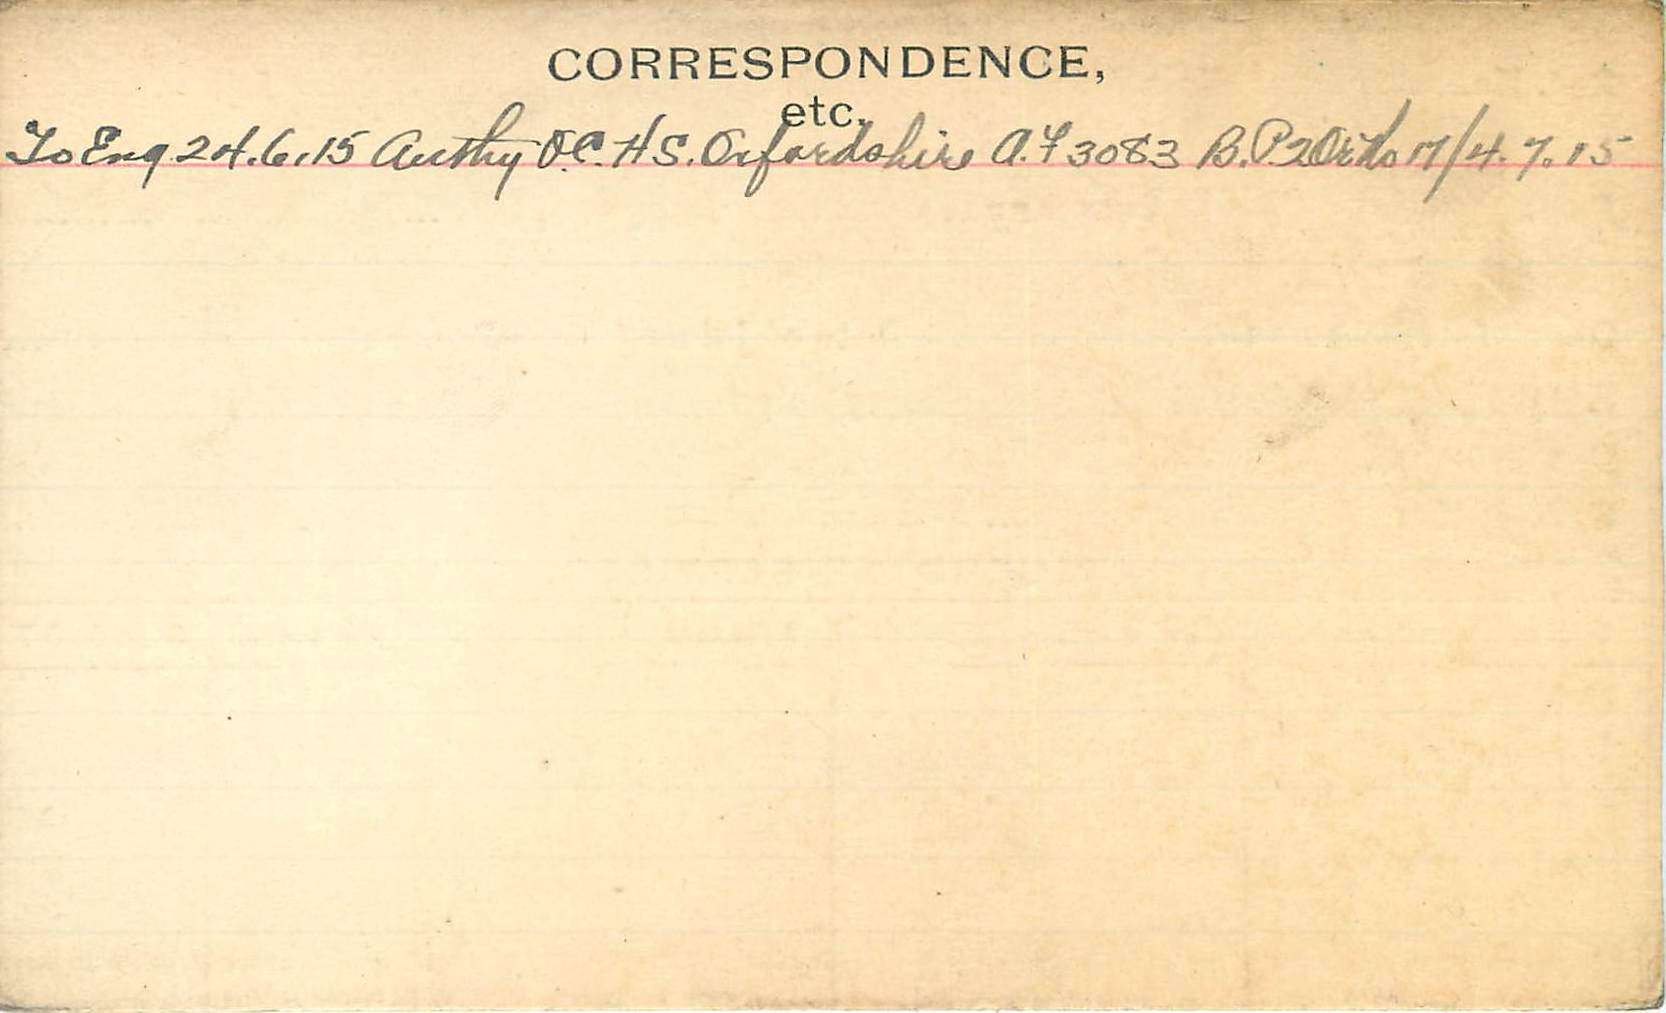 CORRESPONDENCE,
etc.
To Eng 24.6.15 Authy O.C. H S. Oxfordshire A.F 3083 B. P2 Ord 17/4.7.15